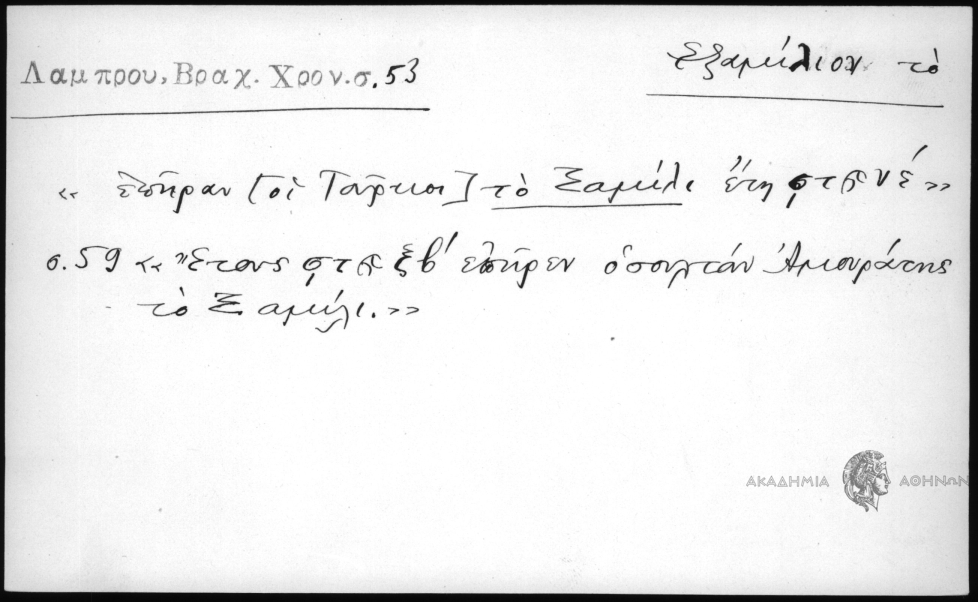 Λαμπρου, Βραχ. Χρον. σ. 53
Ἑξαμίλιον τὸ
«ἐπῆραν [οἱ Τοῦρκοι] τὸ Ξαμίλι ἔτη ϛϡνέ»
σ. 59 «Ἔτους ϛϡξβ´ ἐπῆρεν ὁ σουλτάν Ἀμουράτης
τὸ Ξαμίλι.»
ΑΚΑΔΗΜΙΑ ΑΘΗΝΩΝ